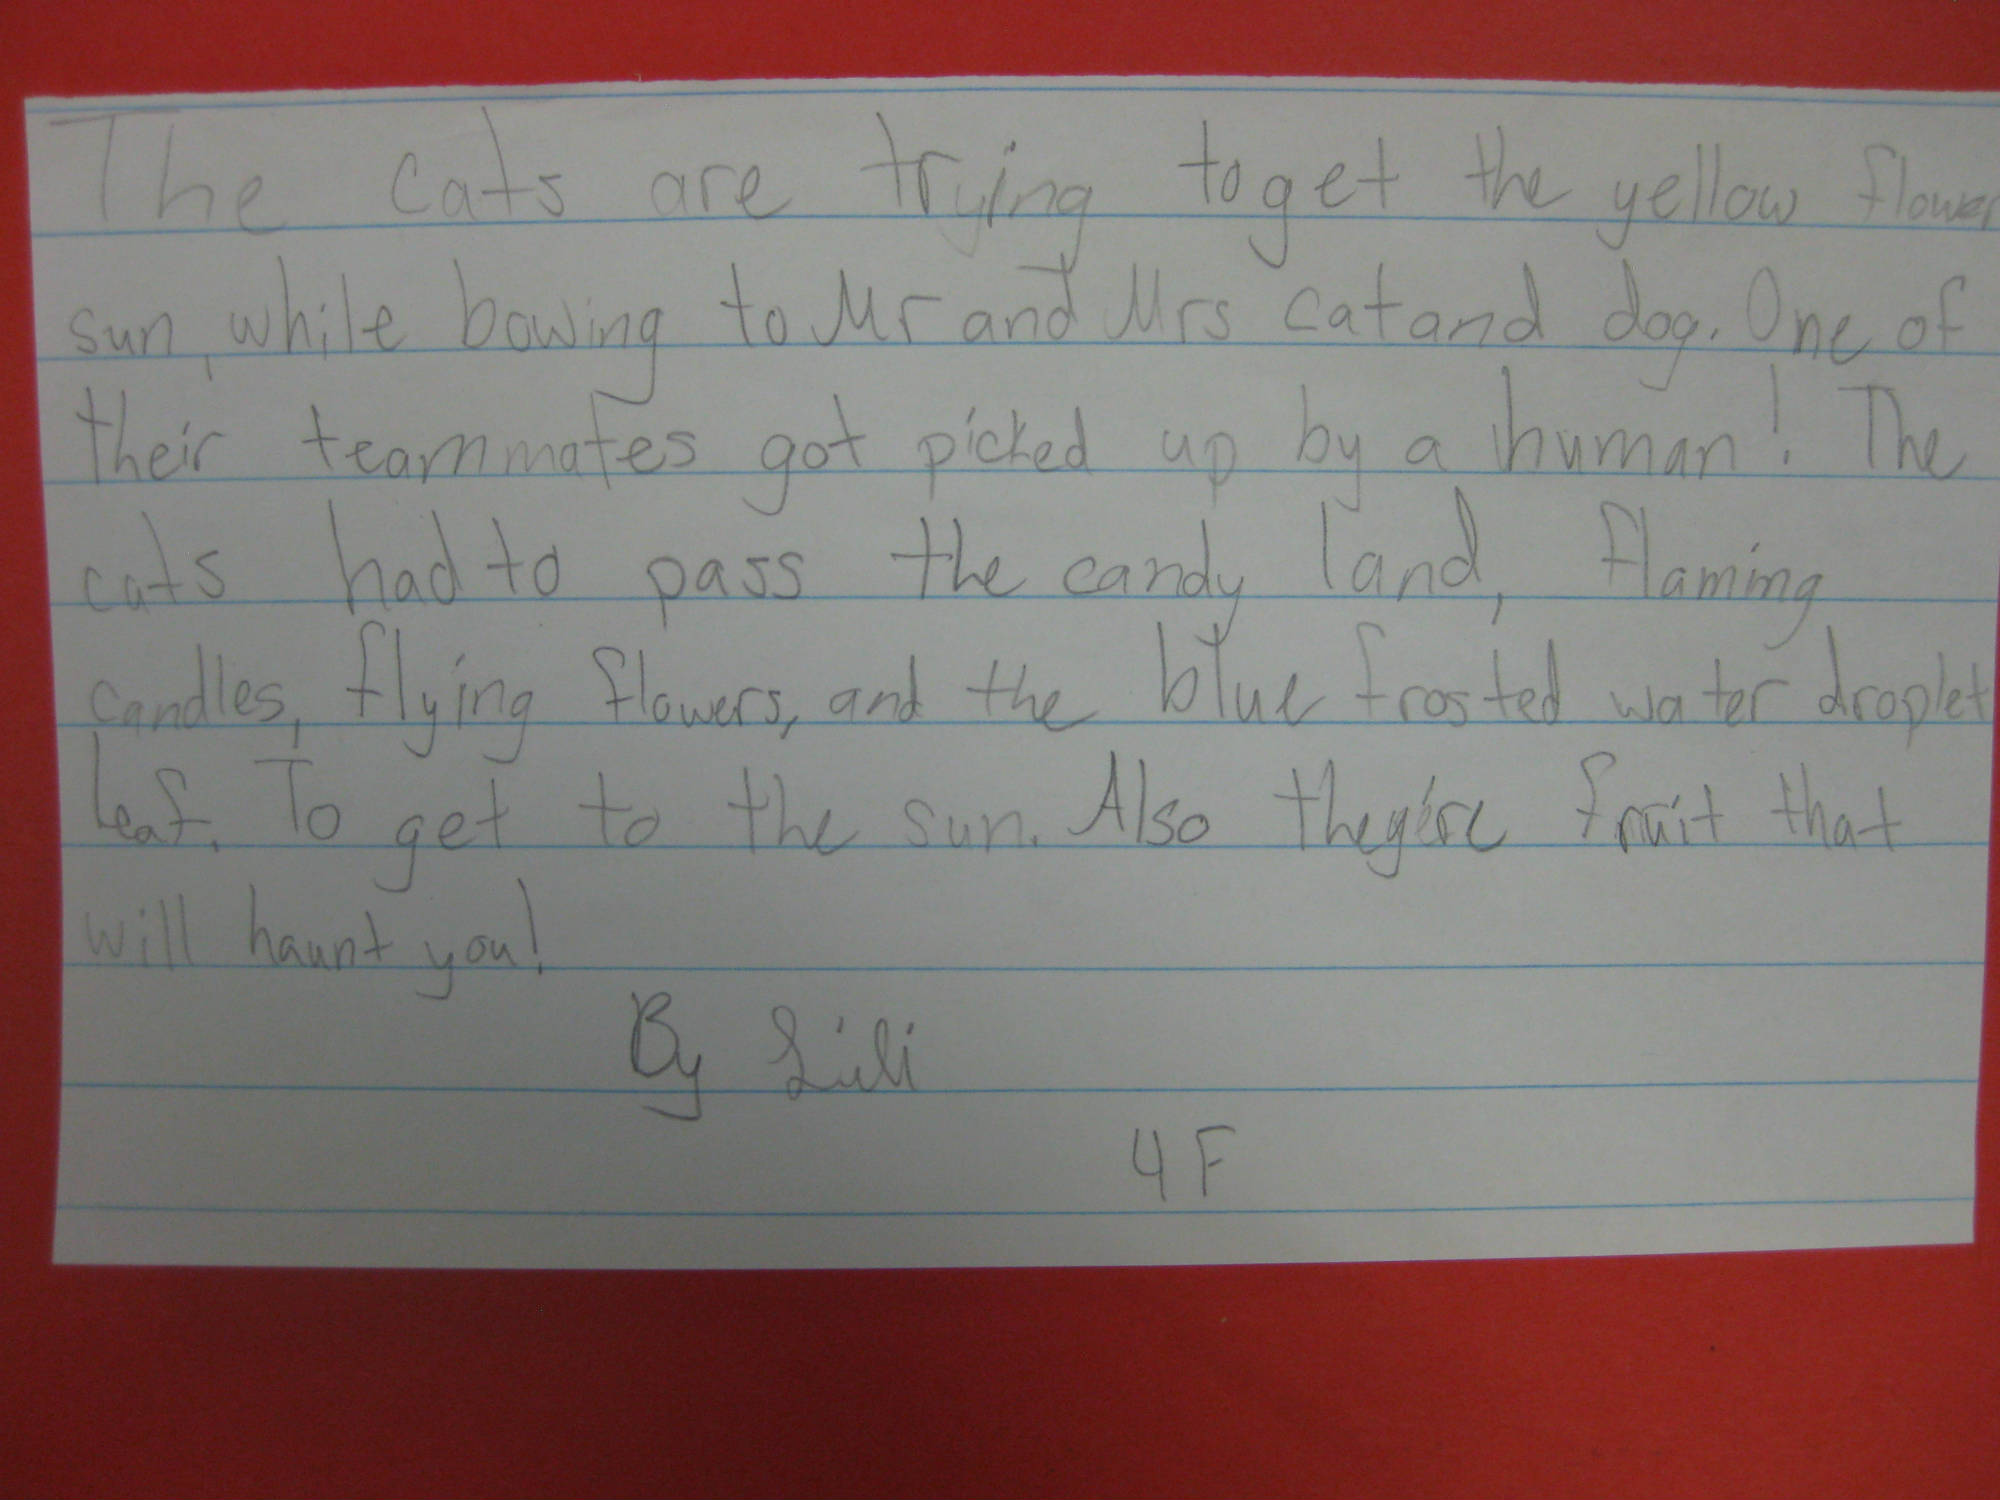 The cats are trying to get the yellow flower
sun, while bowing to Mr and Mrs cat and dog. One of
their teammates got picked up by a human! The
cats had to pass the candy land, flaming
candles, flying flowers, and the blue frosted water droplet
leaf. To get to the sun. Also they're fruit that
will haunt you!
By Lili
4F